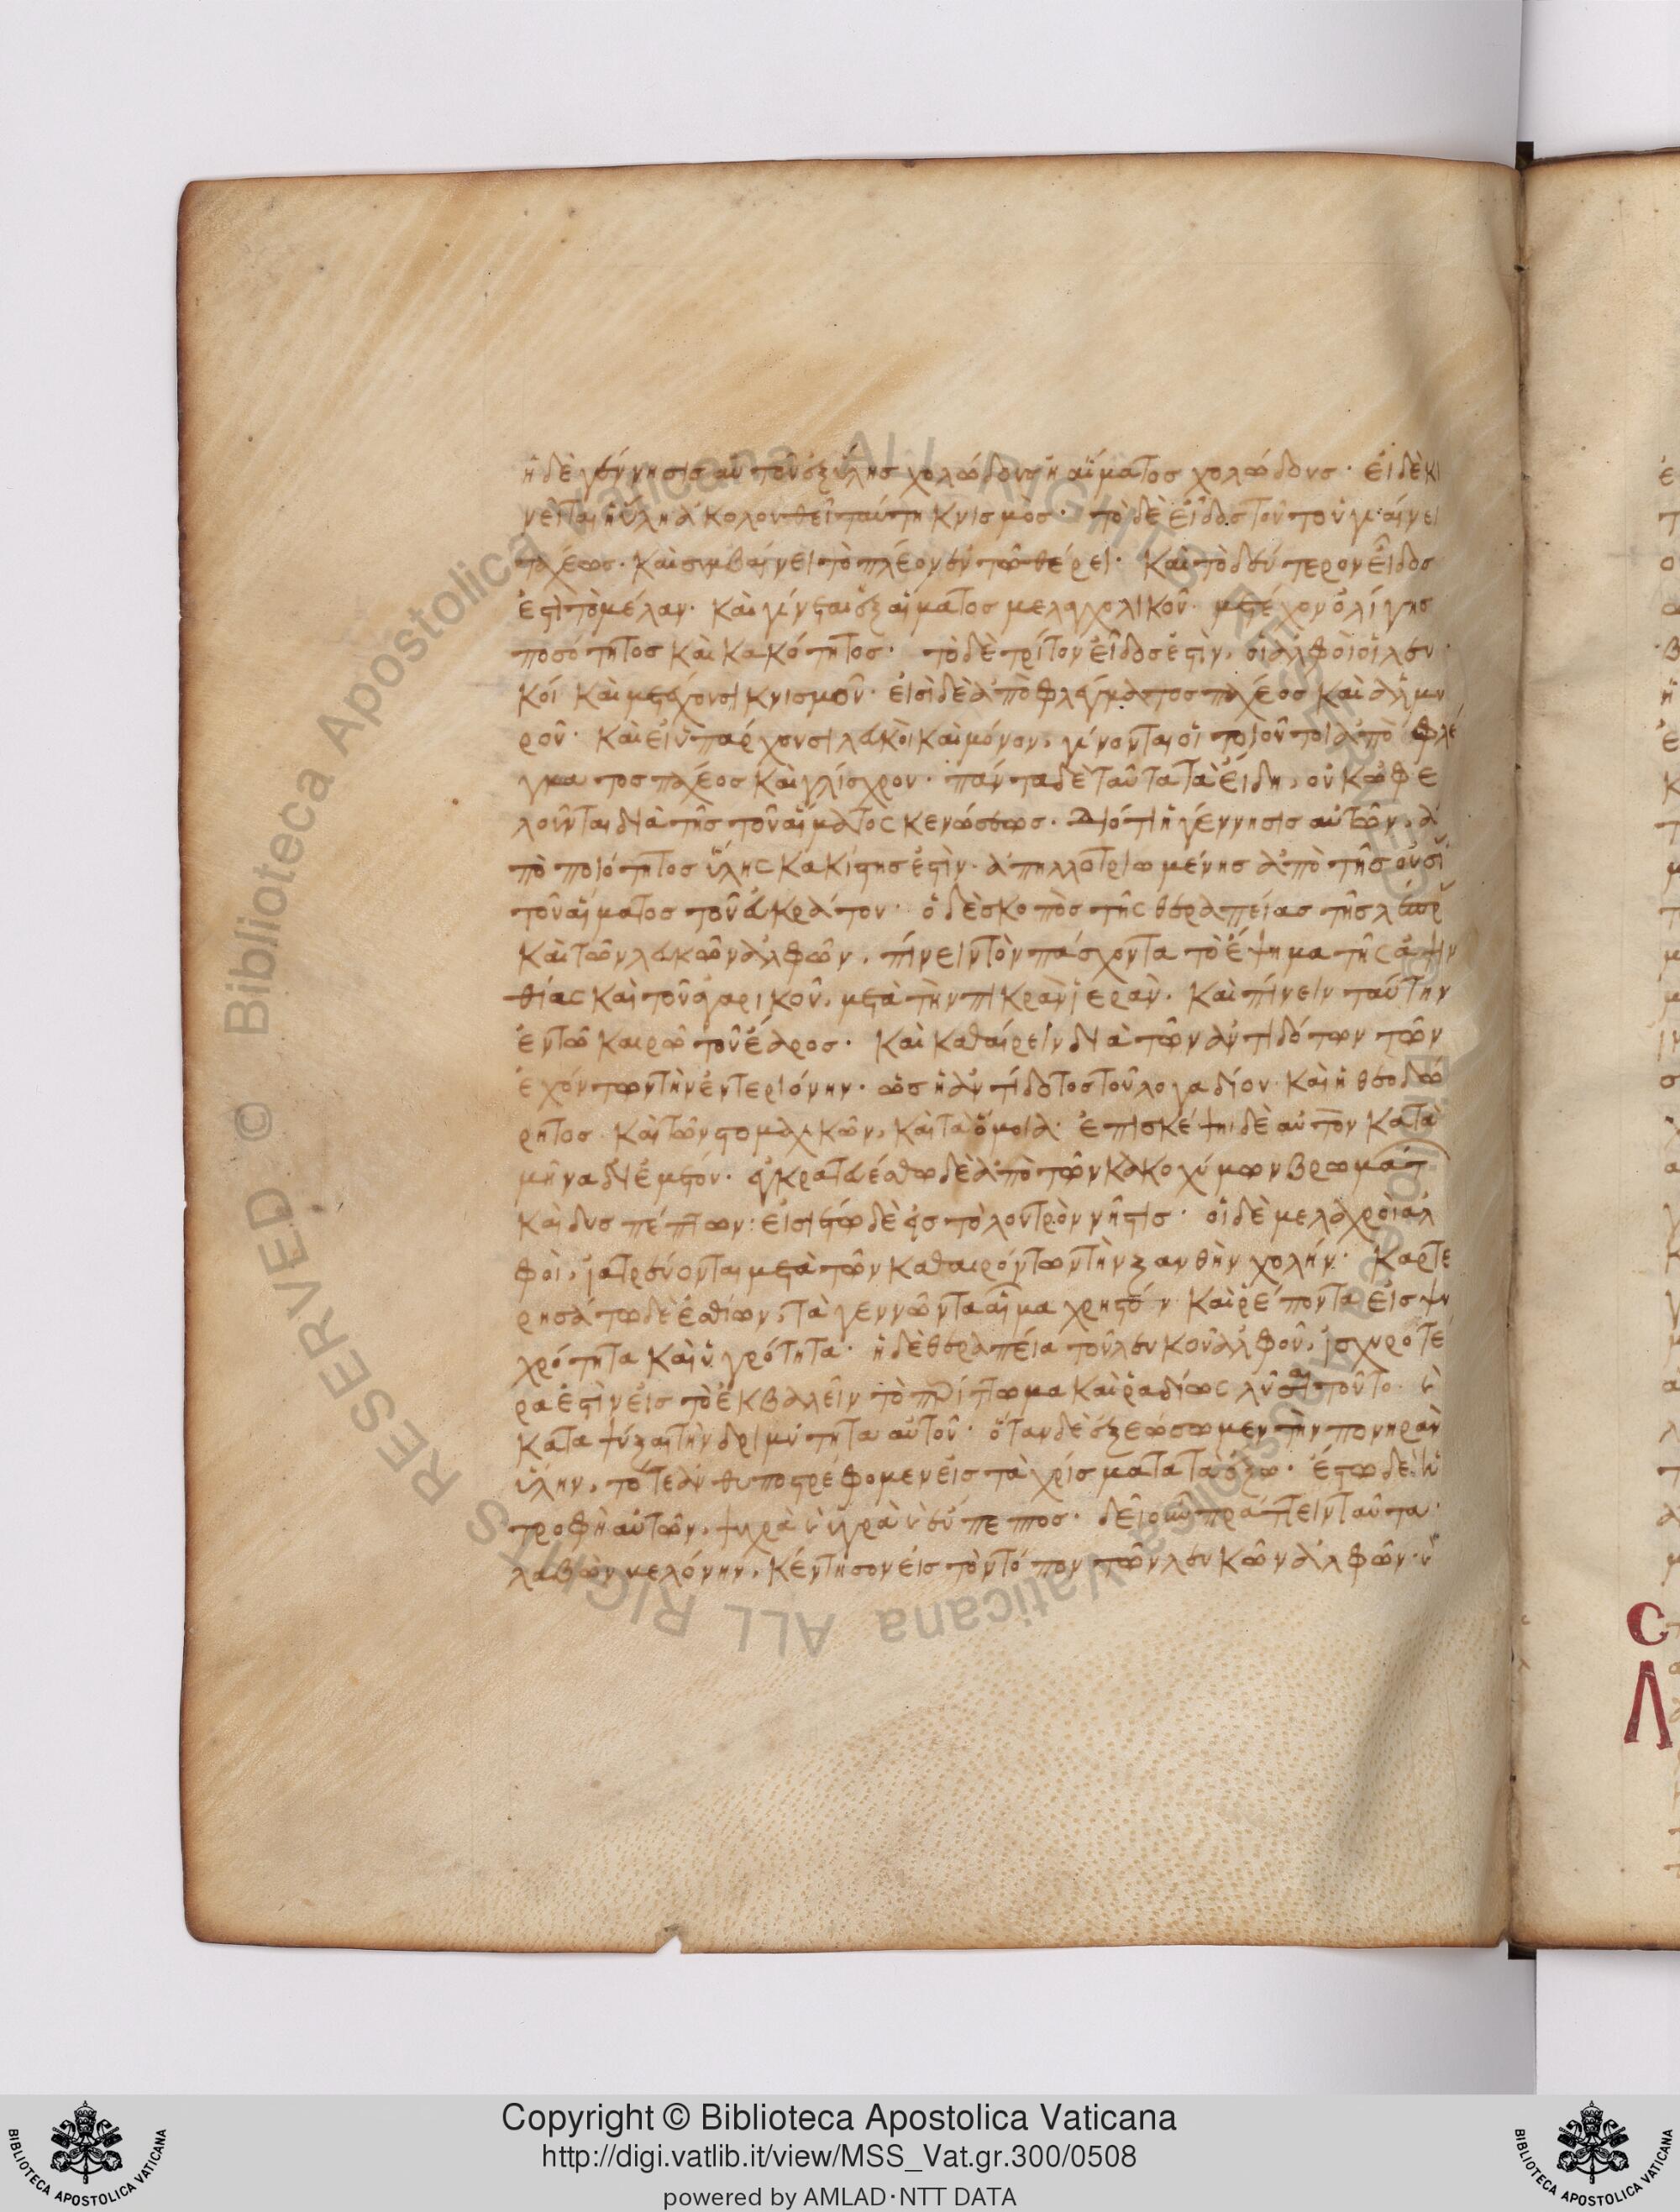 ἡ δὲ γέννησις αὐτοῦ ἐξ ὕλης χολώδους ἢ αἵματος χολώδους· εἰ δὲ κι
νεῖται ἡ ὕλη ἀκολουθεῖ ταύτη κνισμὸς· τὸ δὲ εἶδος τοῦτο ὑγιαίνει
ταχέως· καὶ συμβαίνει τὸ πλέον ἐν τῶ θέρει· καὶ τὸ δεύτερον εἶδος
ἐστὶ τὸ μέλαν· καὶ γίνεται ἐξ αἵματος μελαγχολικοῦ· μετέχον ὀλίγης
ποσότητος καὶ κακότητος· τὸ δὲ τρίτον εἶδος ἐστὶν, οἱ ἀλφοὶ οἱ λευ
κοί καὶ μετέχουσι κνισμοῦ· εἰσὶ δὲ ἀπὸ φλέγματος παχέος καὶ ἁλμυ
ροῦ· καὶ εἰ ὑπάρχουσι λευκοὶ καὶ μόνον, γίνονται οἱ τοιοῦτοι ἀπὸ φλέ
γματος παχέος καὶ γλίσχρου· πάντα δὲ ταῦτα τὰ εἴδη, οὐκ ὠφε
λοῦνται διὰ τῆς τοῦ αἵματος κενώσεως· διότι ἡ γέννησις αὐτῶν, ἀ
πὸ ποιότητος ὕλης κακίστης ἐστὶν· ἀπηλλοτριωμένης ἀπὸ τῆς οὐσί
τοῦ αἵματος τοῦ ἀκράτου· ὁ δὲ σκοπὸς τῆς θεραπείας τῆς λέπρ
καὶ τῶν λευκῶν ἀλφῶν, πίνειν τὸν πάσχοντα τὸ ἕψημα τῆς ἀψιν
θίας καὶ τοῦ ἀγαρικοῦ, μετὰ τὴν πικρὰν ἱερὰν· καὶ πίνειν ταύτην
ἐν τῶ καιρῶ τοῦ ἔαρος· καὶ καθαίρειν διὰ τῶν ἀντιδότων τῶν
ἐχόντων τὴν ἐντεριόνην· ὡς ἡ ἀντίδοτος τοῦ λογαδίου καὶ ἡ θεοδώ
ρητος καὶ τῶν στομαχικῶν, καὶ τὰ ὅμοια· ἐπισκέψη δὲ αὐτὸν κατὰ
μῆνα δι' ἐμέτου· ἐγκρατευέσθω δὲ ἀπὸ τῶν κακοχύμων βρωμάτ
καὶ δυσπέπτων: εἰσίτω δὲ εἰς τὸ λουτρὸν νῆστις· οἱ δὲ μελαχροὶ ἀλ
φοὶ, ἰατρεύονται μετὰ τῶν καθαιρόντων τὴν ξανθὴν χολήν· καρτε
ρησάτω δὲ ἐσθίων, τὰ γεννῶντα αἷμα χρηστόν καὶ ῥέποντα εἰς ψυ
χρότητα καὶ ὑγρότητα· ἡ δὲ θεραπεία τοῦ λευκοῦ ἀλφοῦ, ἰσχυροτέ
ρα ἐστὶν εἰς τὸ ἐκβαλεῖν τὸ περίττωμα καὶ ῥαδίως λῦσαι τοῦτο· καὶ
καταψύξαι τὴν δριμύτητα αὐτοῦ· ὅταν δὲ ἐξεώσωμεν τὴν πονηρὰν
ὕλην, τότε ἀνθυποστρέφομεν εἰς τὰ χρίσματα τὰ ἔξω· ἔστω δὲ καὶ ἡ
τροφὴ αὐτῶν, ψυχρὰ καὶ ὑγρὰ καὶ εὔπεπτος· δεῖ οὖν πράττειν ταῦτα·
λαβὼν βελόνην, κέντησον εἰς τὸν τόπον τῶν λευκῶν ἀλφῶν· καὶ
Copyright © Biblioteca Apostolica Vaticana
http://digi.vatlib.it/view/MSS_Vat.gr.300/0508
powered by AMLAD·NTT DATA